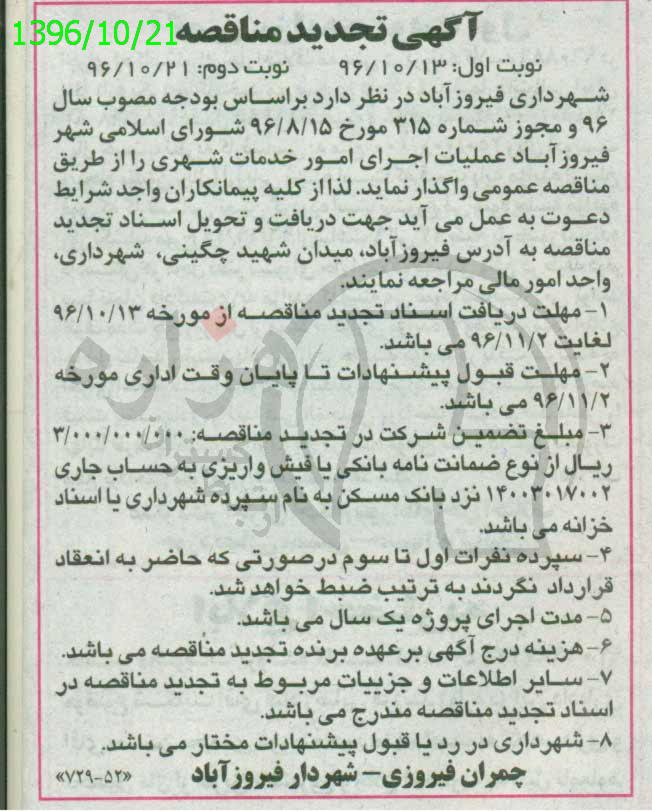 1396/10/21
آگهی تجدید مناقصه
نوبت اول: ۹۶/۱۰/۱۳ نوبت دوم: ۹۶/۱۰/۲۱
شهرداری فیروزآباد در نظر دارد براساس بودجه مصوب سال
۹۶ و مجوز شماره ۳۱۵ مورخ ۹۶/۸/۱۵ شورای اسلامی شهر
فیروزآباد عملیات اجرای امور خدمات شهری را از طریق
مناقصه عمومی واگذار نماید. لذا از کلیه پیمانکاران واجد شرایط
دعوت به عمل می آید جهت دریافت و تحویل اسناد تجدید
مناقصه به آدرس فیروزآباد، میدان شهید چگینی، شهرداری،
واحد امور مالی مراجعه نمایند.
۱- مهلت دریافت اسناد تجدید مناقصه از مورخه ۹۶/۱۰/۱۳
لغایت ۹۶/۱۱/۲ می باشد.
۲- مهلت قبول پیشنهادات تا پایان وقت اداری مورخه
۹۶/۱۱/۲ می باشد.
۳- مبلغ تضمین شرکت در تجدید مناقصه: ۳/۰۰۰/۰۰۰/۰۰۰
ریال از نوع ضمانت نامه بانکی یا فیش واریزی به حساب جاری
۱۴۰۰۳۰۱۷۰۰۲ نزد بانک مسکن به نام سپرده شهرداری یا اسناد
خزانه می باشد.
۴- سپرده نفرات اول تا سوم درصورتی که حاضر به انعقاد
قرارداد نگردند به ترتیب ضبط خواهد شد.
۵- مدت اجرای پروژه یک سال می باشد.
۶- هزینه درج آگهی برعهده برنده تجدید مناقصه می باشد.
۷- سایر اطلاعات و جزییات مربوط به تجدید مناقصه در
اسناد تجدید مناقصه مندرج می باشد.
۸- شهرداری در رد یا قبول پیشنهادات مختار می باشد.
چمران فیروزی- شهردار فیروزآباد «۷۲۹-۵۲»
هزاره